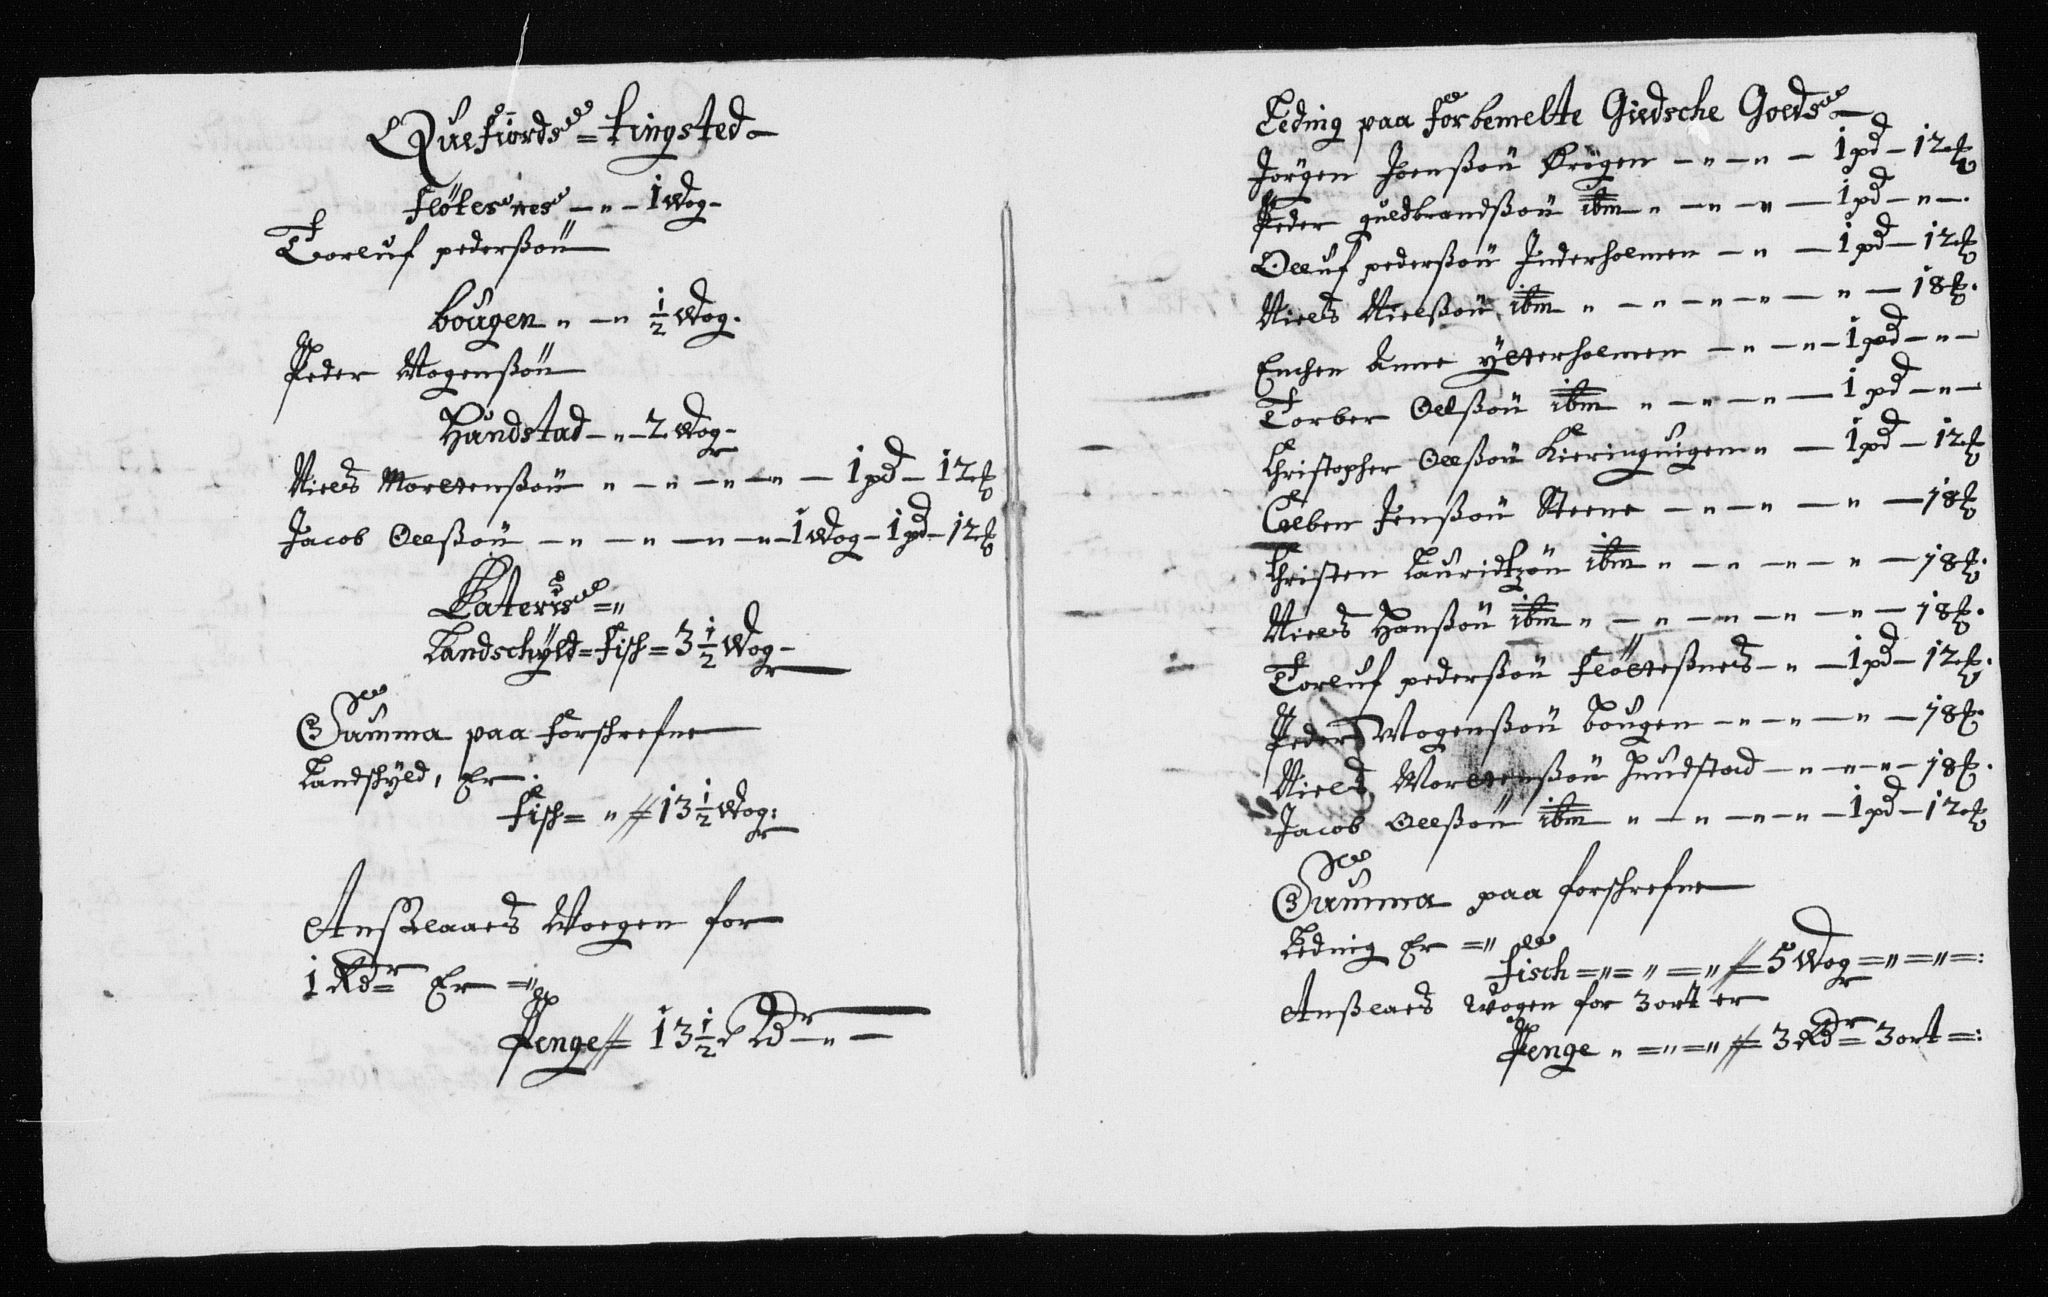 Quefiords = tingsted –
Flötesnes – „ – 1 Wog –
Torluf pederßøn
bougen „ – „ ½ Wog.
Peder Mogenßøn
Hundstad – „ – 2 Wog –
Niels Mortenßøn „ – „ – „ – „ – 1 pd – 12 ℔
Jacob Oelßøn – „ – „ – „ – „ – 1 Wog – 1 pd – 12 ℔
Lateris = „
Landschyld = Fisch = 3 ½ Wog –
Summa paa forschrefne
Landschyld, Er
Fisch = „ // 13 ½ Wog:
Anßlaaes Wogen for
1 Rdr Er = „
Penge // 13 ½ Rdr – „ –
Leding paa forbemelte Giedsche Goeds –
Jörgen Joenßøn Krögen – „ – „ – 1 pd – 12 ℔
Peder guldbrandßøn ibm „ – „ – „ – 1 pd – „ –
Olluf pederßøn Inderholmen – „ – 1 pd – 12 ℔
Niels Nielßøn ibm „ – „ – „ – „ – „ – 18 ℔.
Enchen Anne ÿtterholmen – „ – „ – 1 pd – „ –
Torber Oelßøn ibm „ – „ – „ – 1 pd – „ –
Christopher Oelßøn Kieringuigen „ – 1 pd – 12 ℔
Elben Jenßøn Steene – „ – „ – „ – 18 ℔
Christen Lauridtzøn ibm „ – „ – „ – „ – 18 ℔.
Niels Hanßøn ibm „ – „ – „ – „ – 18 ℔.
Torluf pederßøn Flötteßnes – „ – 1 pd – 12 ℔.
Peder Mogenßøn bougen – „ – „ – „ – 18 ℔.
Niels Mortenßøn Hundstad – „ – „ – 18 ℔.
Jacob Oelßøn ibm „ – „ – „ – „ – 1 pd – 12 ℔
Summa paa forschrefne
Leding Er = „
Fisch = „ = „ = „ // 5 Wog = „ = „ = :
Anßlaes Wogen for 3 ort er
Penge „ = „ = „ // 3 Rdr = 3 ort = :